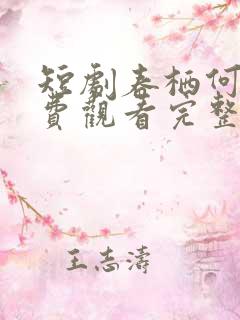 短劇春栖何
費觀看完整
王志濤